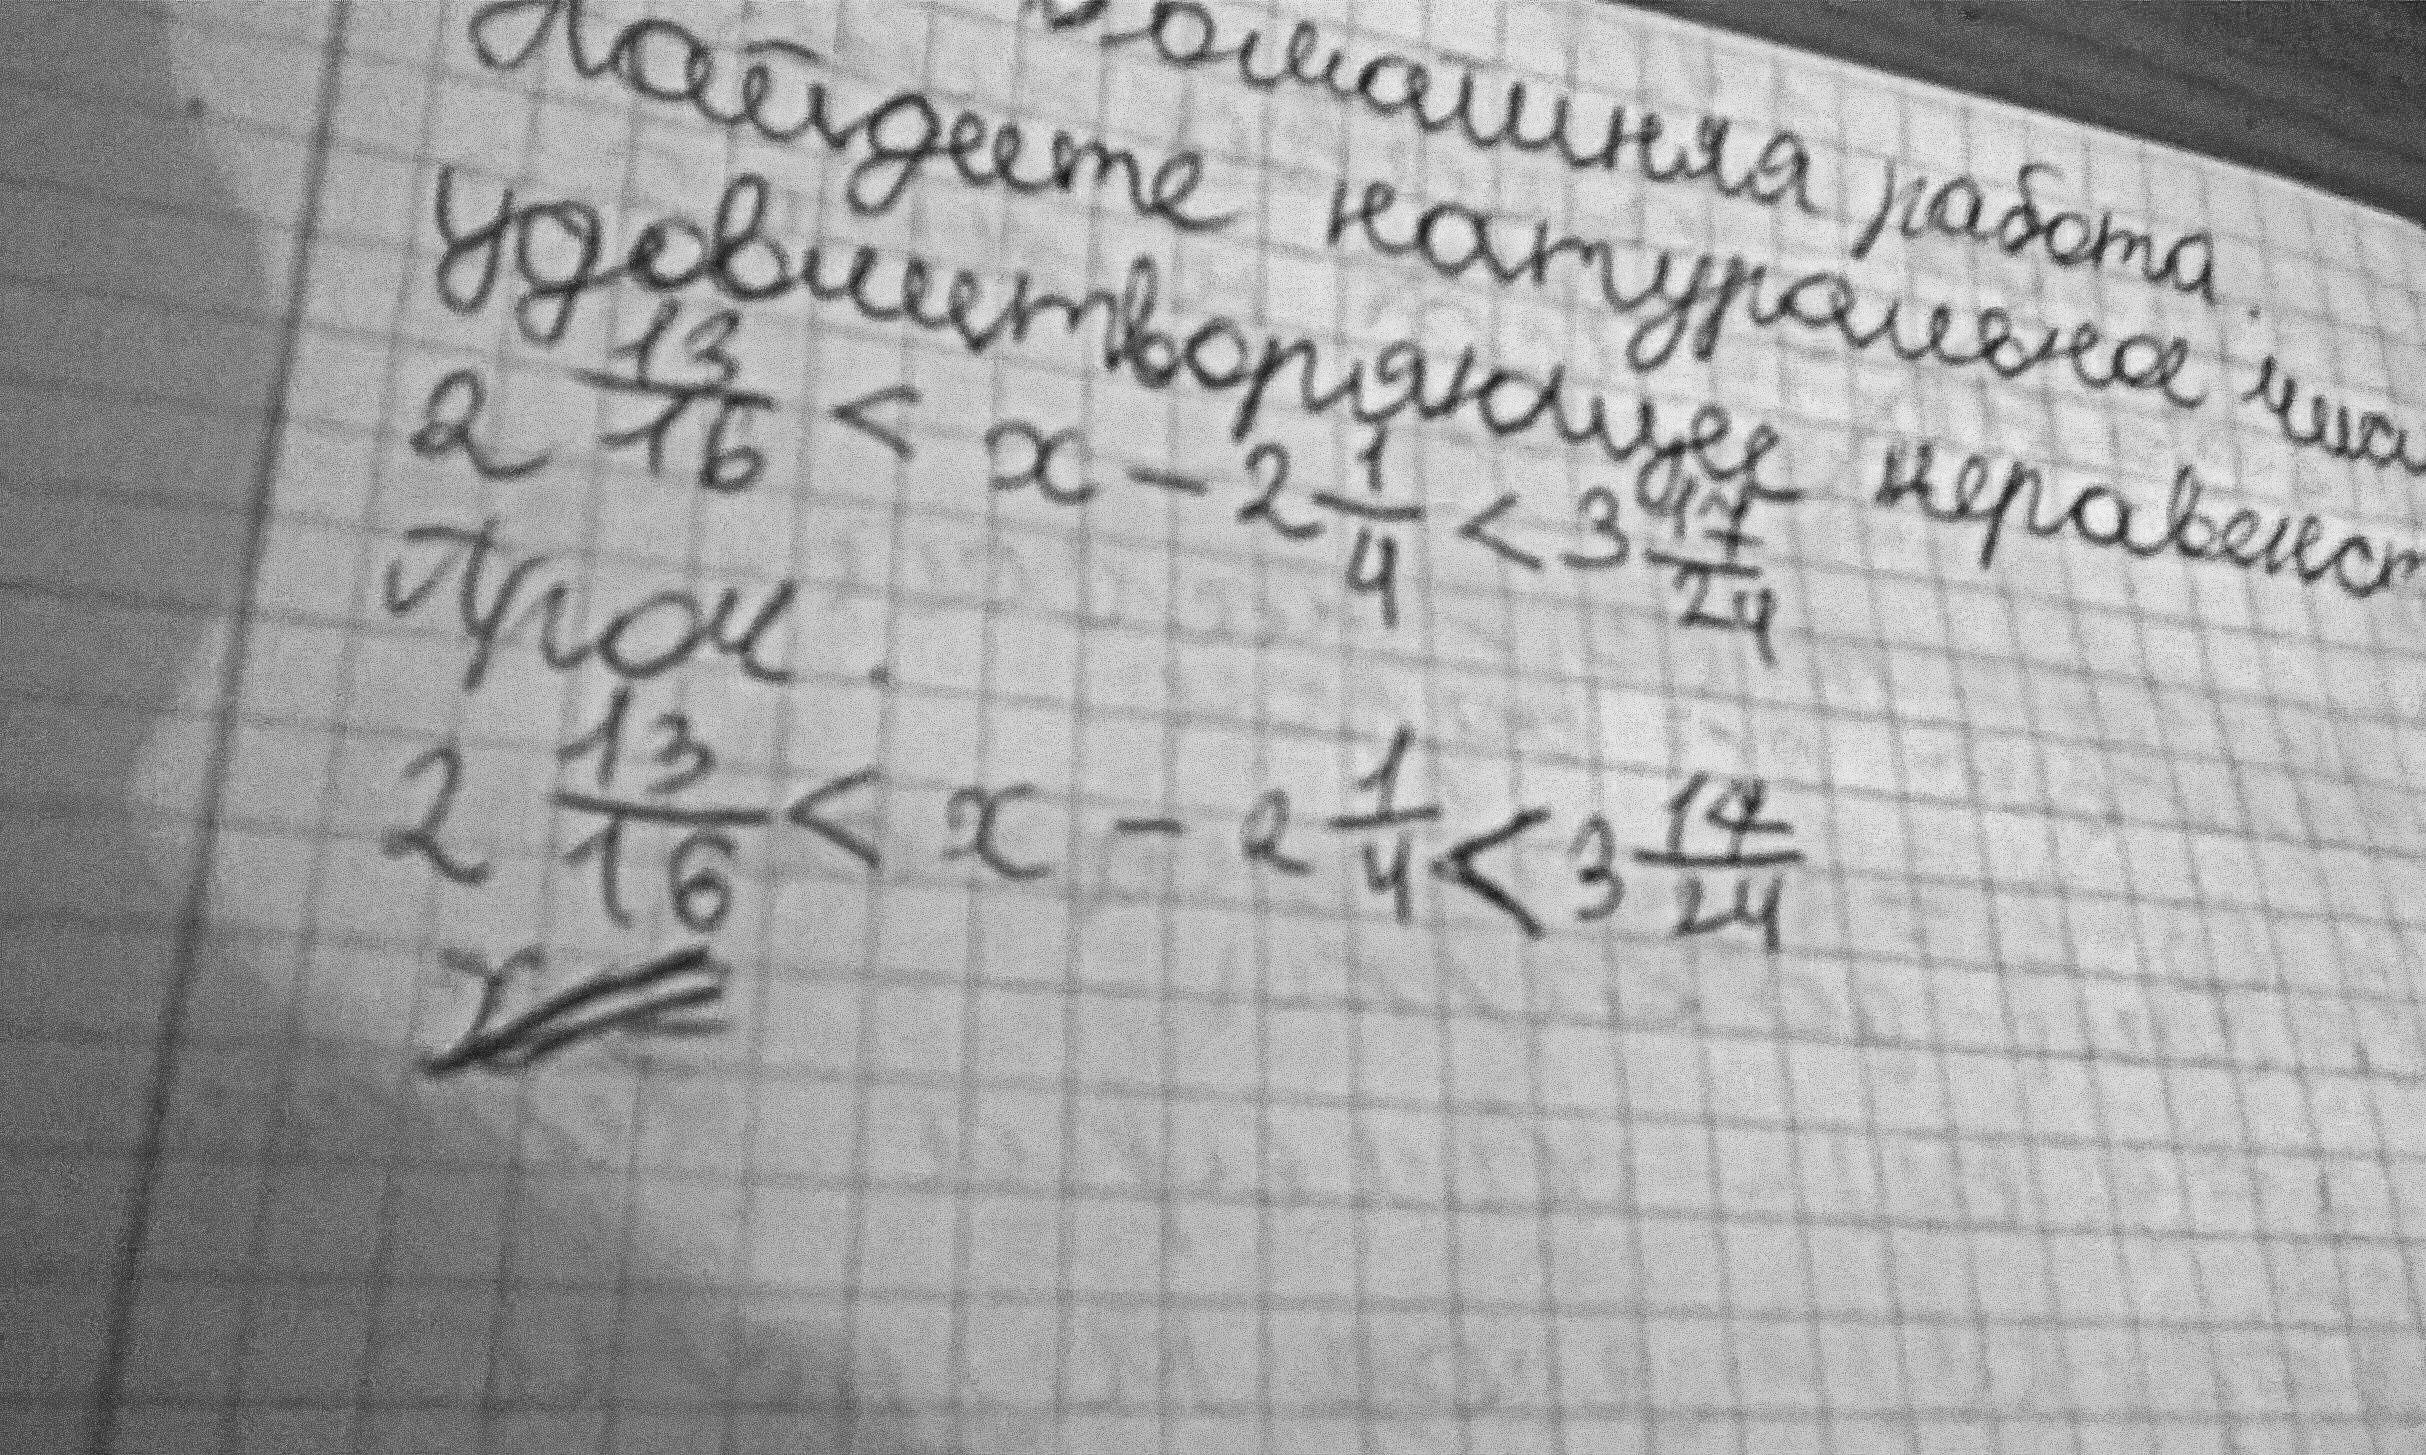 Домашняя работа.
Найдите натуральна
удовлетворяющее неравенст
2 13/16 < x - 2 1/4 < 3 17/24
2 13/16 < x - 2 1/4 < 3 17/24